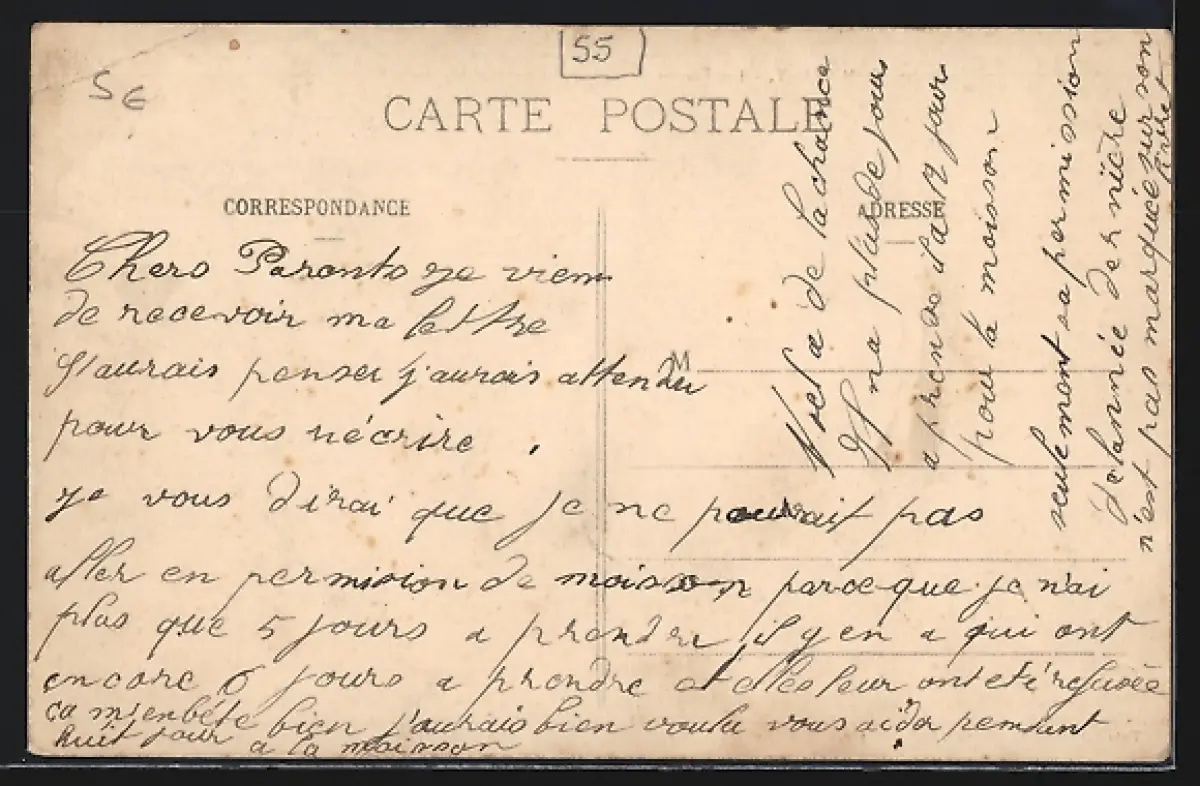 55
5 €
CARTE POSTALE
CORRESPONDANCE
ADRESSE
M
Chers Parents je viens
de recevoir ma lettre
J'aurais penser j'aurais attendu
pour vous nécrire.
je vous dirai que je ne pourait pas
aller en permision de moisson parceque je n'ai
plus que 5 jours a prendre il y en a qui ont
encore 6 jours a prendre et elles leur ont eté refusée
ça m'enbéte bien j'aurais bien voulu vous aider pendant
huit jour a la moisson
a de la chance
Il na plus de jour
a prendre il a 12 jour
pour la moisson
seulement sa permission
de lannée dernière
n'est pas marquée sur son
livret